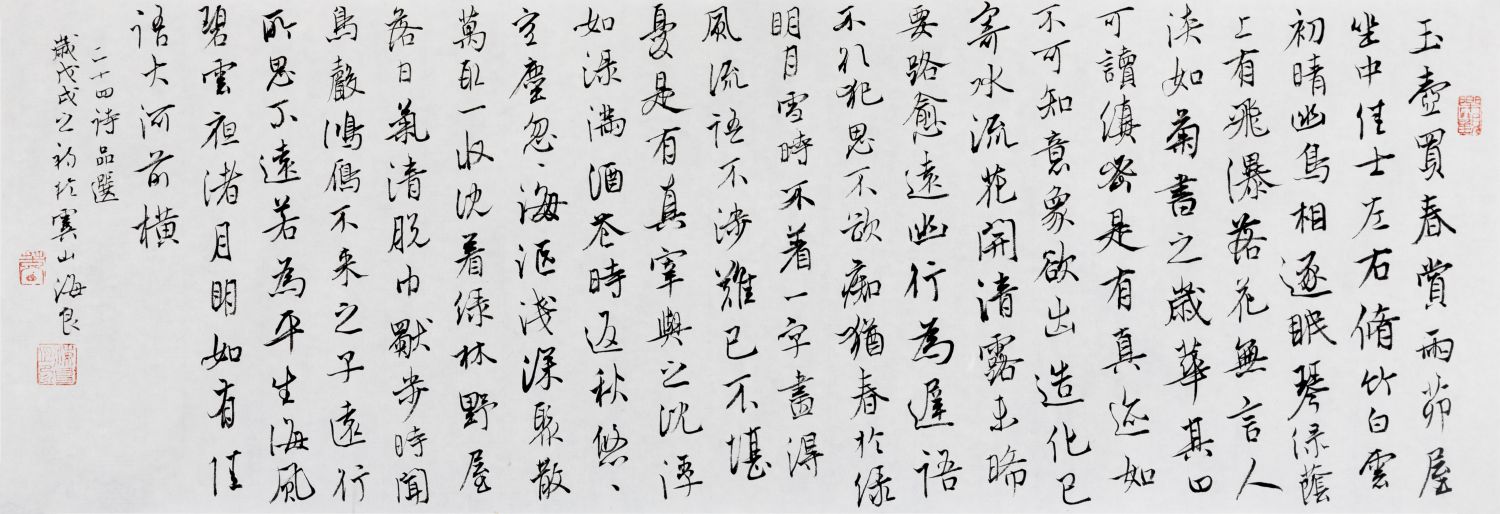 玉壺買春賞雨茆屋
坐中佳士左右脩竹白雲
初晴幽鳥相逐眠琴绿蔭
上有飛瀑落花無言人
淡如菊書之歲華其曰
可讀縝密是有真迹如
不可知意象欲出造化已
寄水流花開清露未晞
要路愈遠幽行為遲語
不欲犯思不欲痴猶春於绿
明月雪時不着一字盡得
風流語不涉難已不堪
憂是有真宰與之沈浮
如渌滿酒花時返秋悠、
空塵忽、海漚淺深聚散
萬取一收沈着绿林野屋
落日氣清脱巾獨步時聞
鳥聲鴻雁不来之子遠行
所思不遠若為平生海風
碧雲夜渚月明如有佳
語大河前横
二十四诗品選
歲戊戌之初於雲山海良